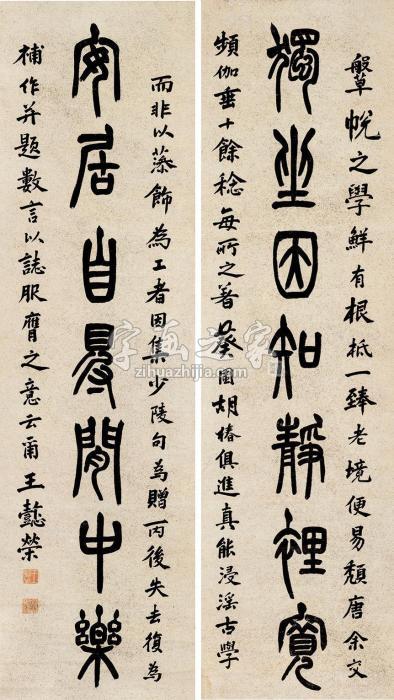 鞶帨之學鮮有根柢一臻老境便易頹唐余交
獨坐因知靜裡寬
頻伽垂十餘稔每所之著癸圃胡椿俱進真能浸淫古學
而非以藻飾為工者因集少陵句為贈丙後失去復為
安居自㝵閒中樂
補作并題數言以誌服膺之意云爾王懿榮
字画之家
zihuazhijia.com